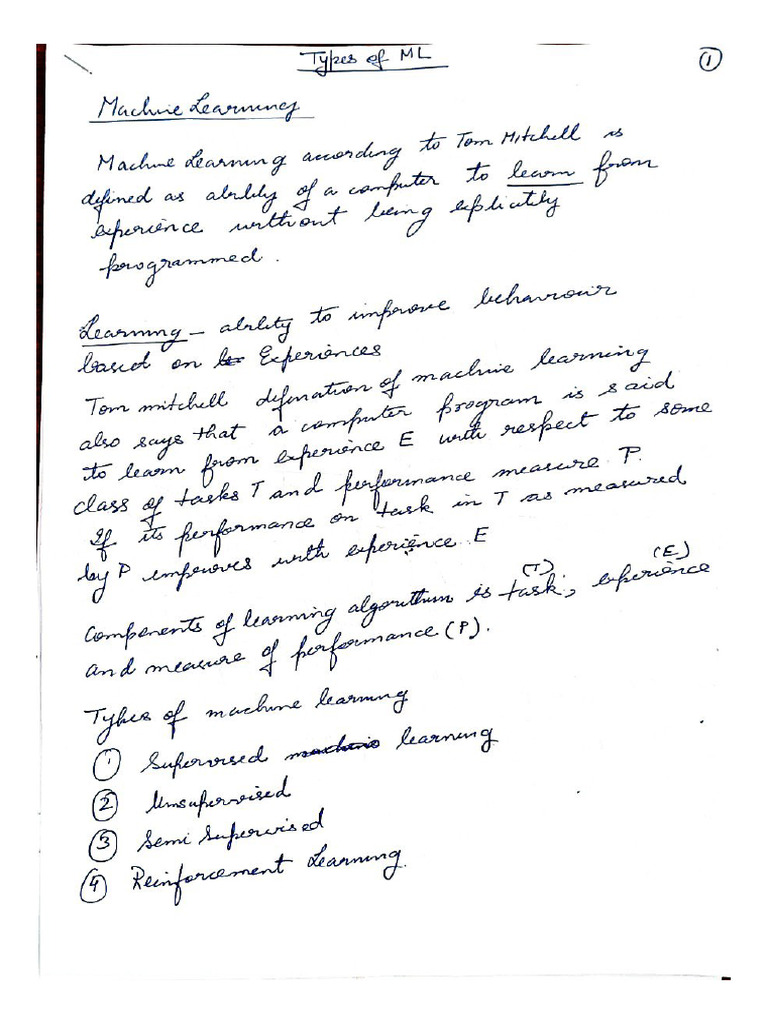 Types of ML
1
Machine Learning
Machine Learning according to Tom Mitchell is
defined as ability of a computer to learn from
experience without being explicitly
programmed.
Learning - ability to improve behaviour
based on Experiences
Tom mitchell defination of machine learning
also says that a computer program is said
to learn from experience E with respect to some
class of tasks T and performance measure P.
If its performance on task in T as measured
by P improves with experience E
(T) (E)
Components of learning algorithm is task, experience
and measure of performance (P).
Types of machine learning
1 Supervised machine learning
2 Unsupervised
3 Semi Supervised
4 Reinforcement Learning.